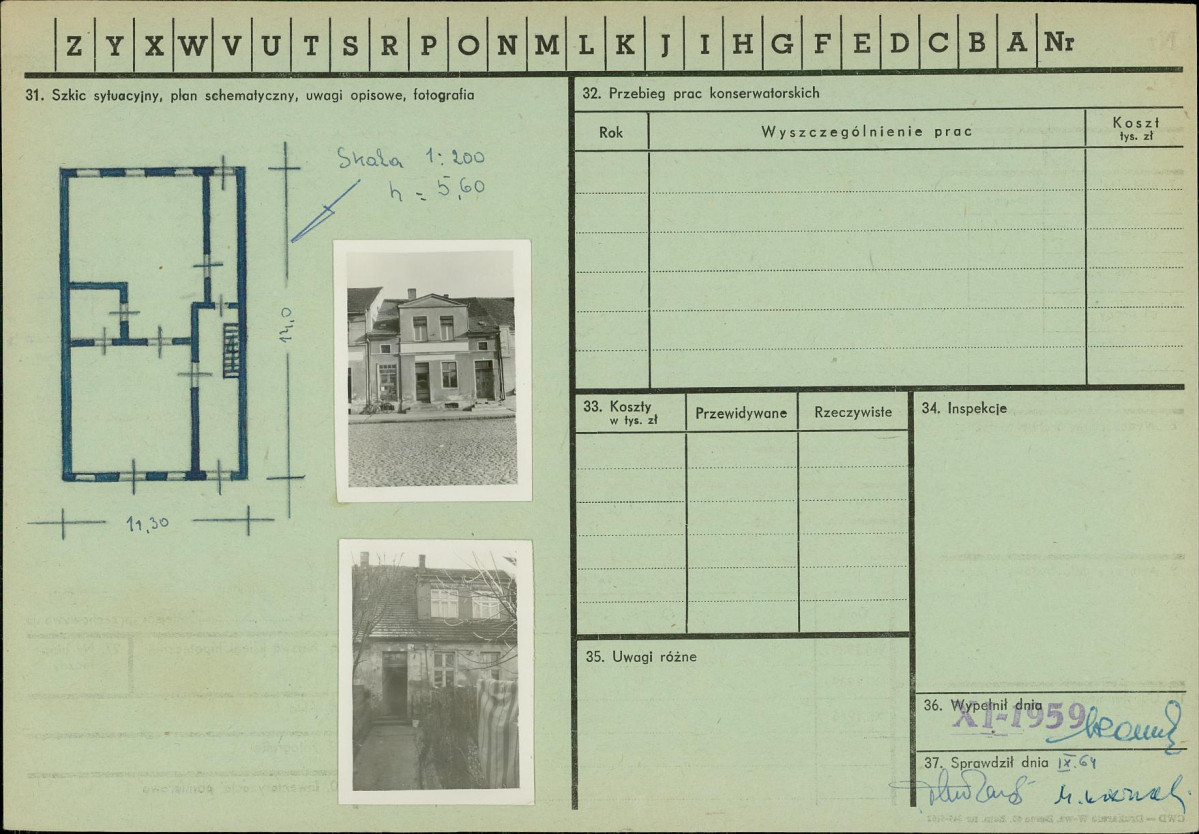 Z Y X W V U T S R P O N M L K J I H G F E D C B A Nr
31. Szkic sytuacyjny, plan schematyczny, uwagi opisowe, fotografia
Skala 1:200
h = 5,60
14,0
11,30
32. Przebieg prac konserwatorskich
Rok
Wyszczególnienie prac
Koszt
tys. zł
33. Koszty
w tys. zł
Przewidywane
Rzeczywiste
34. Inspekcje
35. Uwagi różne
36. Wypełnił dnia
XI-1959
37. Sprawdził dnia IX.64